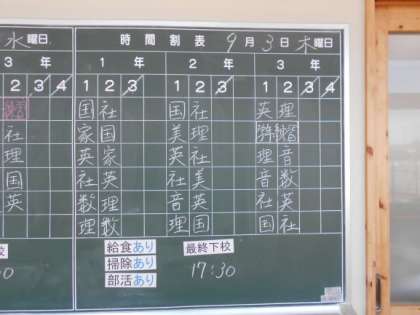 水曜日
3 年
1 2 3 4
練習
社
理
国
英
校
0
時間割表 9月3日木曜日
1 年 2 年 3 年
1 2 3 1 2 3 1 2 3 4
国 社 国 社 英 理
家 国 美 理 練習
英 家 英 社 理 音
社 英 社 美 音 数
数 理 音 英 社 英
理 数 理 国 国 社
給食あり 最終下校
掃除あり 17:30
部活あり